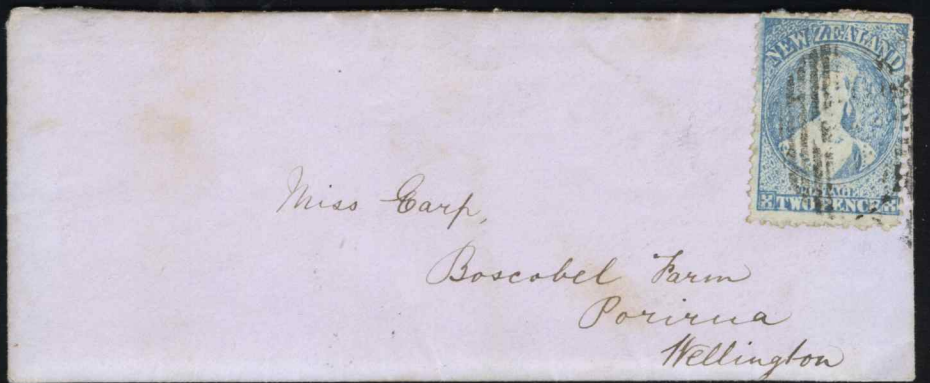 NEW ZEALAND
POSTAGE
TWO PENCE
Miss Earp,
Boscobel Farm
Porirua
Wellington